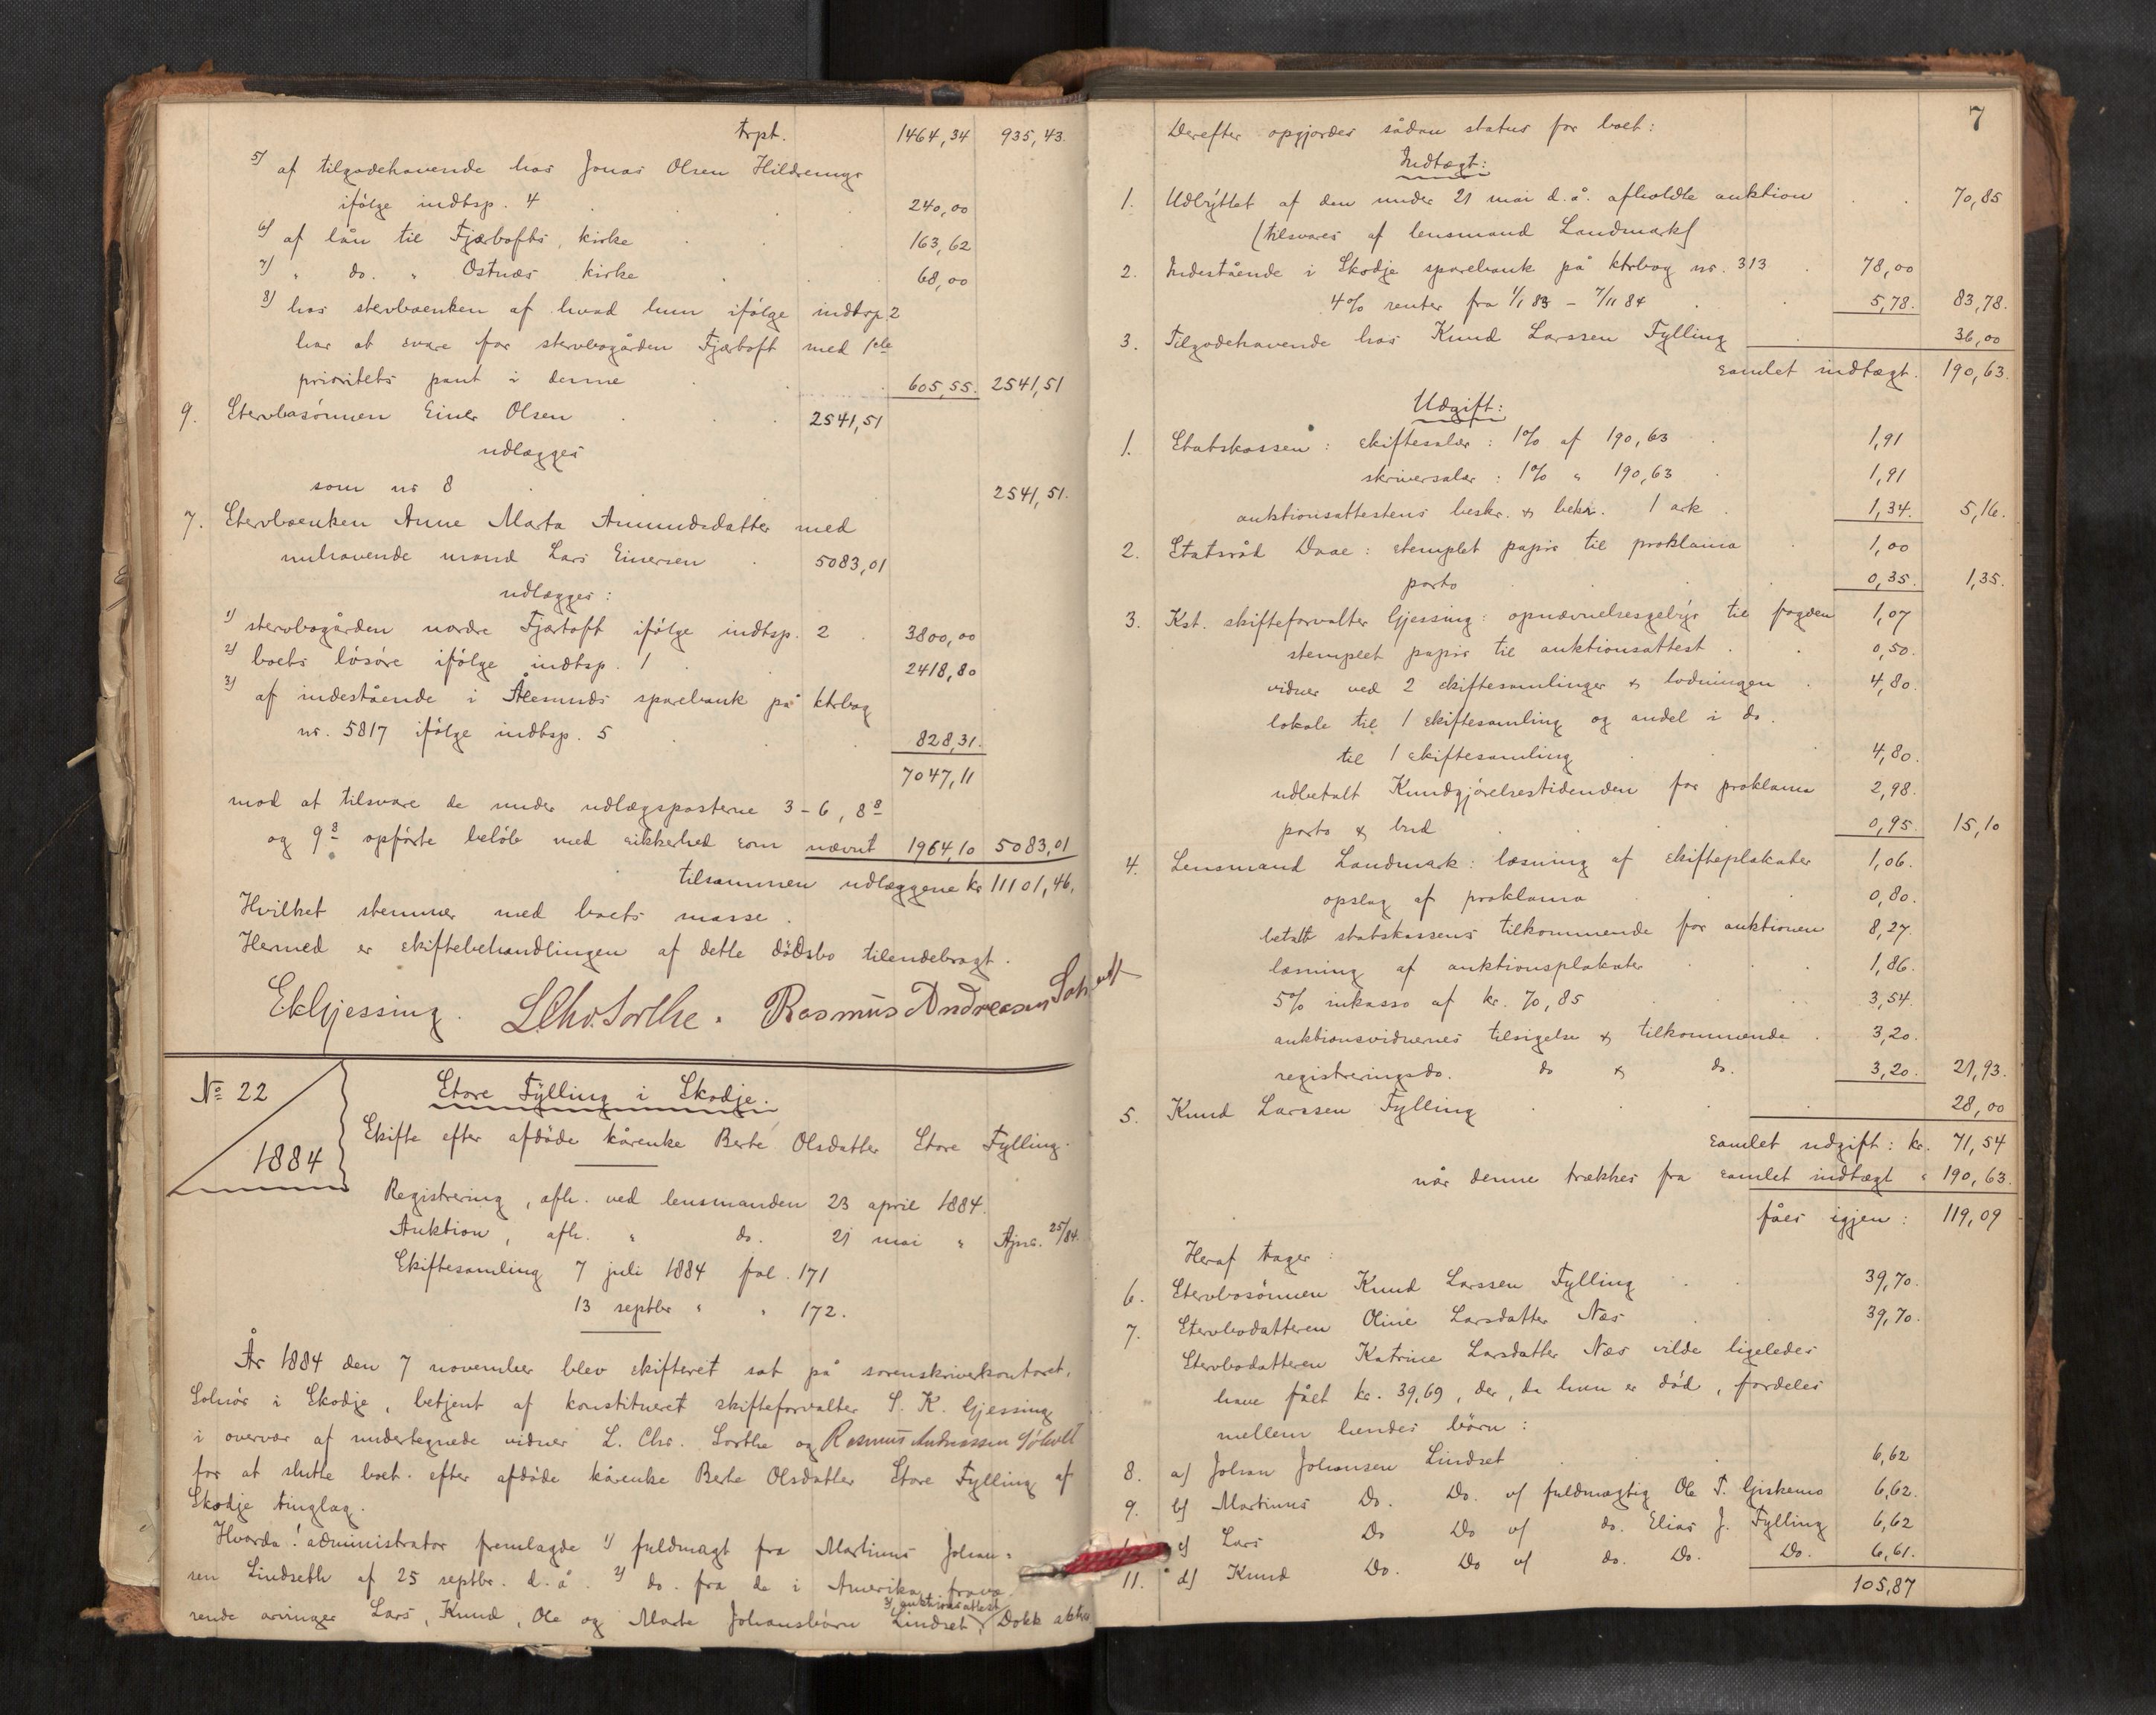 trpt. 1464,34 935,43.
5) af tilgodehavende hos Jonas Olsen Hildrenugs
ifølge indtsp. 4 240,00
6) af lån til Fjærtofts, kirke 163,62
7) " do. " Ostnæs kirke 68,00
8) hos stervboenken af hvad hun ifølge indtsp. 2
har at svare for stervbogården Fjærtoft med 1ste
prioritets pant i denne 605,55. 2541,51
9. Stervbosønnen Einer Olsen 2541,51
udlægges
som nr 8 2541,51.
7. Stervboenken Anne Marta Amundsdatter med
nuhavende mand Lars Einersen 5083,01
udlægges:
1) stervbogården nordre Fjærtoft ifølge indtsp. 2 3800,00
2) boets løsøre ifølge indtsp. 1 2418,80
3) af indestående i Ålesunds sparebank på ktrbog
nr. 5817 ifølge indtsp. 5 828,31.
7047,11
mod at tilsvare de under udlægsposterne 3-6, 8 8
og 9 8 opførte beløb med sikkerhed som nævnt 1964,10 5083,01
tilsammen udlæggene kr 11101,46.
Hvilket stemmer med boets masse.
Hermed er skiftebehandlingen af dette dødsbo tilendebragt.
EkGjessing. LChr.Sorthe. Rasmus Andreasen Søholt
No 22
1884
Store Fylling i Skodje.
Skifte efter afdøde kårenke Berte Olsdatter Store Fylling.
Registrering, afh. ved lensmanden 23 april 1884.
Auktion, afh. " do. 21 mai " Ajns. 25/84.
Skiftesamling 7 juli 1884 fol. 171
13 septbr " " 172.
År 1884 den 7 november blev skifteret sat på sorenskriverkontoret,
Solnør i Skodje, betjent af konstitueret skifteforvalter S. K. Gjessing
i overvær af undertegnede vidner L. Chr. Sorthe og Rasmus Andreassen Søholt
for at slutte boet efter afdøde kårenke Berte Olsdatter Store Fylling af
Skodje tinglag.
Hvorda! administrator fremlagde 1) fuldmagt fra Martinus Johan-
sen Lindseth af 25 septbr. d. å. 2) do. fra de i Amerika fravæ
rende arvinger Lars, Knud, Ole og Marte Johansbørn Lindset, 3) auktionsattest Dokk
7
Derefter opgjordes sådan status for boet:
Indtægt:
1. Udbyttet af den under 21 mai d. å. afholdte auktion 70,85
(tilsvares af lensmand Landmark)
2. Indestående i Skodje sparebank på ktrbog nr. 313 78,00
4% renter fra 1/1 83 - 7/11 84 5,78. 83,78.
3. Tilgodehavende hos Knud Larssen Fylling 36,00
samlet indtægt. 190,63.
Udgift:
1. Statskassen: skiftesalær: 1% af 190,63 1,91
skriversalær: 1% " 190,63 1,91
auktionsattestens beskr. & bekr. 1 ark 1,34. 5,16.
2. Statsråd Daae: stemplet papir til proklama 1,00
porto 0,35. 1,35.
3. Kst. skifteforvalter Gjessing: opnævnelsesgebyr til fogden 1,07
stemplet papir til auktionsattest 0,50.
vidner ved 2 skiftesamlinger & lodningen 4,80.
lokale til 1 skiftesamling og andel i do.
til 1 skiftesamling 4,80.
udbetalt Kundgjørelsestidenden for proklama 2,98.
porto & bud 0,95. 15,10
4. Lensmand Landmark: læsning af skifteplakater 1,06.
opslag af proklama 0,80.
betalt statskassens tilkommende for auktionen 8,27.
læsning af auktionsplakater 1,86.
5% inkasso af kr. 70,85 3,54.
auktionsvidnernes tilsigelse & tilkommende 3,20.
registreringsdo. do & do. 3,20. 21,93.
5. Knud Larssen Fylling 28,00
samlet udgift: kr. 71,54
når denne trækkes fra samlet indtægt " 190,63.
fåes igjen: 119,09
Heraf tager:
6. Stervbosønnen Knud Larssen Fylling 39,70.
7. Stervbodatteren Oline Larsdatter Næs 39,70.
Stervbodatteren Katrine Larsdatter Næs vilde ligeledes
have fået kr. 39,69, der, da hun er død, fordeles
mellem hendes børn:
8. a) Johan Johansen Lindset 6,62
9. b) Martinus Do. Do. v/ fuldmægtig Ole T. Giskemo 6,62.
c) Lars Do Do v/ do. Elias J. Fylling 6,62
11. d) Knud Do. Do v/ do. Do. Do. 6,61.
105,87